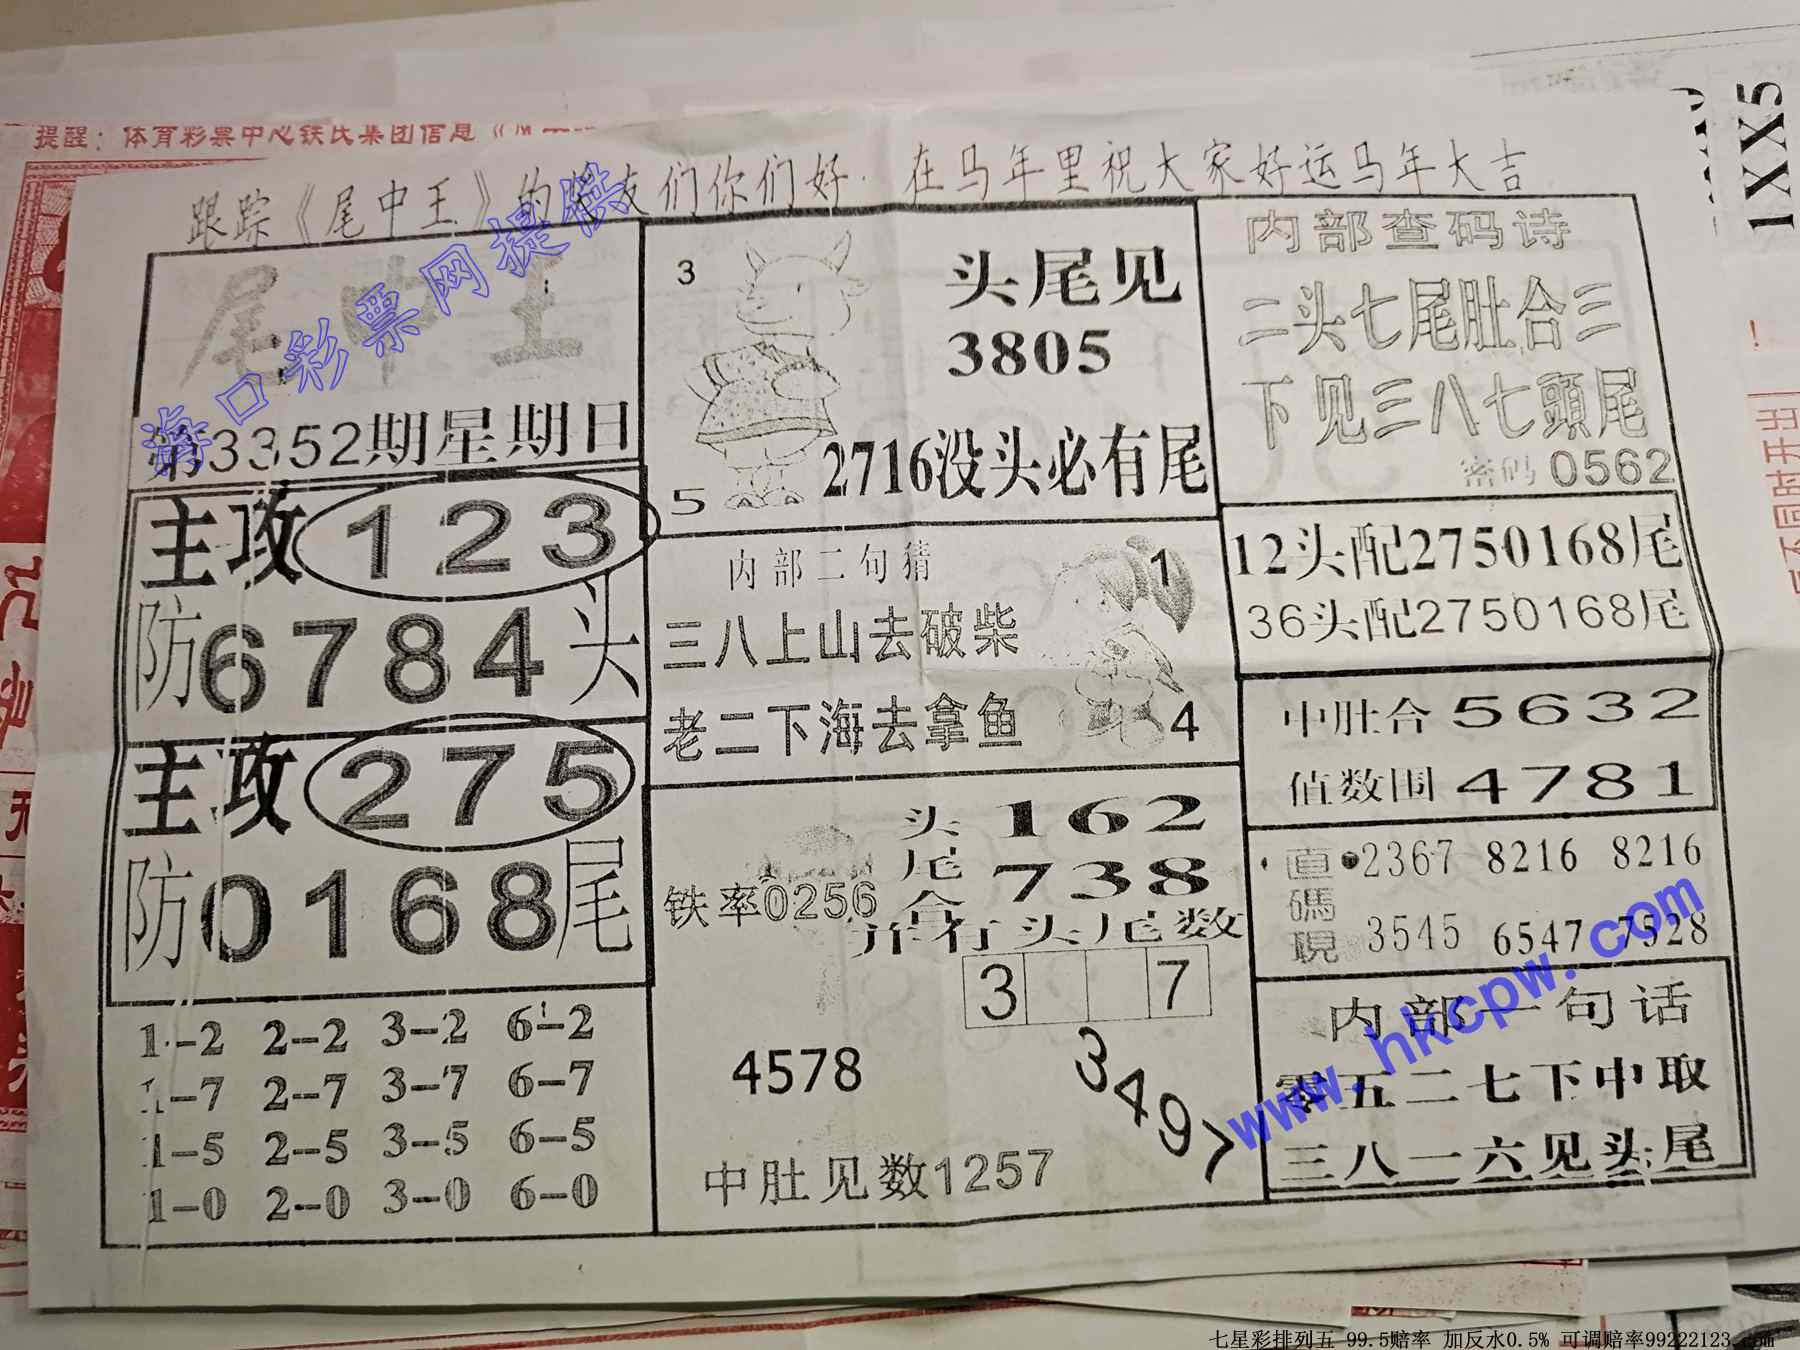 提醒：体育彩票中心铁氏集团信息《
1XX5
跟踪《尾中王》的 友们你们好.在马年里祝大家好运马年大吉
海口彩票网提供
尾中王
第3352期星期日
主攻 123
防 6784 头
主攻 275
防 0168 尾
1-2 2-2 3-2 6-2
1-7 2-7 3-7 6-7
1-5 2-5 3-5 6-5
1-0 2-0 3-0 6-0
3
头尾见
3805
5
2716没头必有尾
内部二句猜
三八上山去破柴
老二下海去拿鱼
1
4
头 162
尾 738
合
铁率0256
并行头尾数
3 7
4578
3497
中肚见数1257
内部查码诗
二头七尾肚合三
下见三八七頭尾
密码 0562
12头配2750168尾
36头配2750168尾
中肚合 5632
值数围 4781
直碼現
2367 8216 8216
3545 6547 7528
内部一句话
零五二七下中取
三八一六见头尾
www.hkcpw.com
不同时开出
七星彩排列五 99.5赔率 加反水0.5% 可调赔率99222123.com